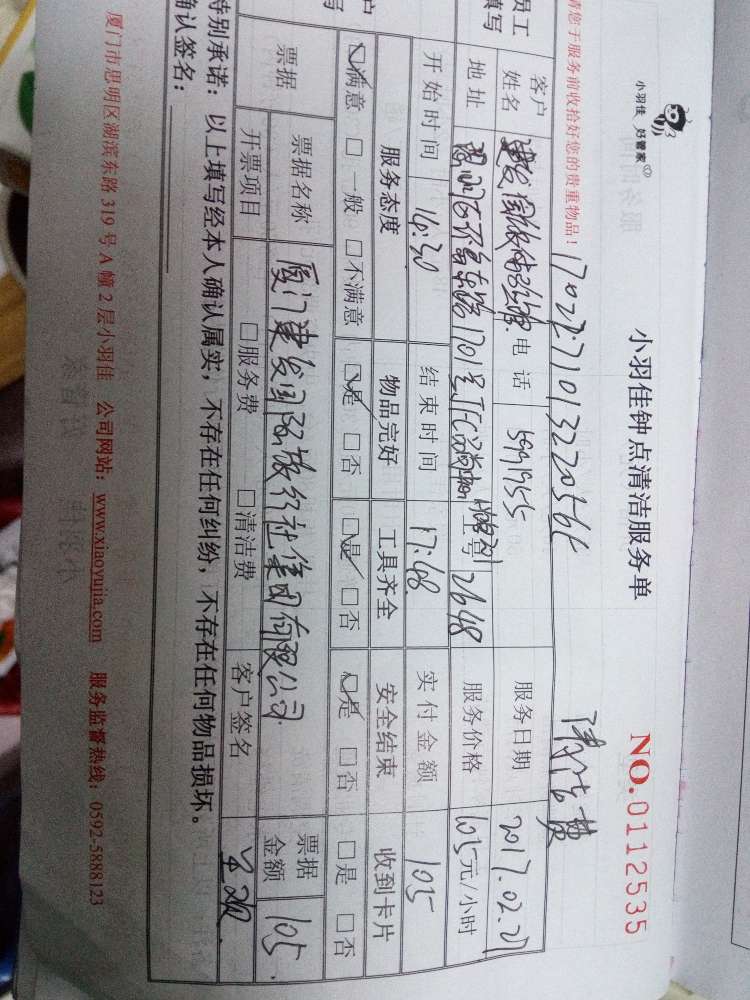 小羽佳 好管家
小羽佳钟点清洁服务单
NO.0112535
请您于服务前收拾好您的贵重物品！
清洁费
员工
填写
客户
姓名
电话 5991955
服务日期 2017.02.21
地址
工号 2648
服务价格 105元/小时
开始时间 16:30 结束时间 17:48 实付金额 105
客户
服务态度 物品完好 工具齐全 安全结束 收到卡片
☑满意 □一般 □不满意 ☑是 □否 ☑是 □否 ☑是 □否 □是 □否
票据 票据名称 厦门建发国际旅行社集团有限公司 票据金额 105.
开票项目 □服务费 □清洁费 客户签名
特别承诺：以上填写经本人确认属实，不存在任何纠纷，不存在任何物品损坏。
确认签名：
厦门市思明区湖滨东路 319 号 A 幢 2 层小羽佳 公司网站：www.xiaoyujia.com 服务监督热线：0592-5888123